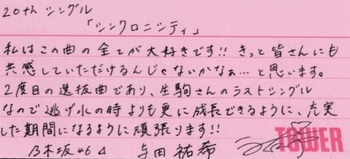 20th シングル
「シンクロニシティ」
私はこの曲の全てが大好きです!! きっと皆さんにも
共感していただけるんじゃないかなぁ…と思います。
2度目の選抜曲であり、生駒さんのラストシングル
なので逃げ水の時よりも更に成長できるように、充実
した期間になるように頑張ります!!
乃木坂46 与田祐希
TOWER